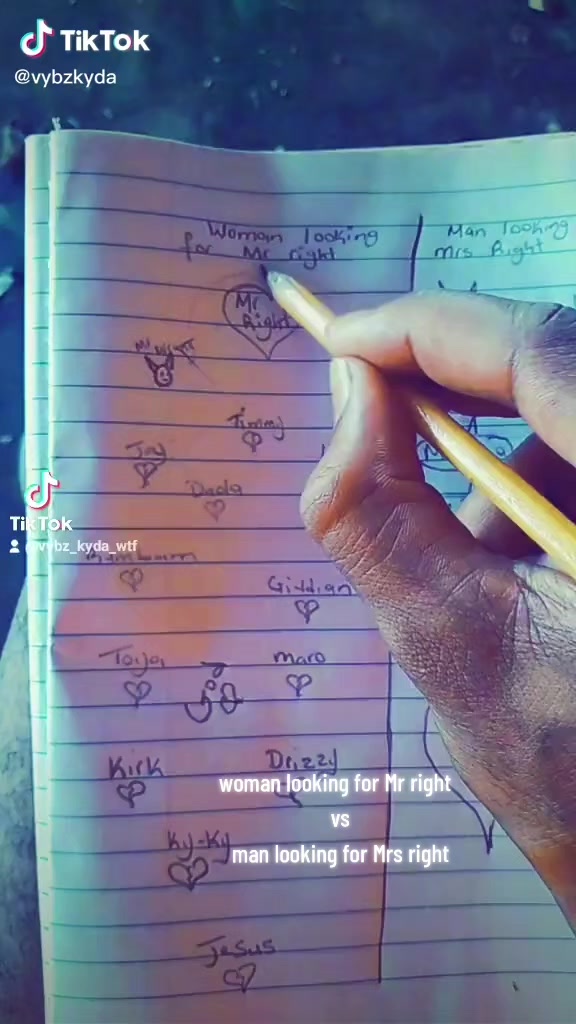 TikTok
@vybzkyda
Woman looking
for Mr right
Man looking
Mrs Right
Mr
Right
Timmy
Jay
Dada
TikTok
Gittian
Toya
maro
Kirk
Drizzy
woman looking for Mr right
vs
Ky-Ky
man looking for Mrs right
Jesus